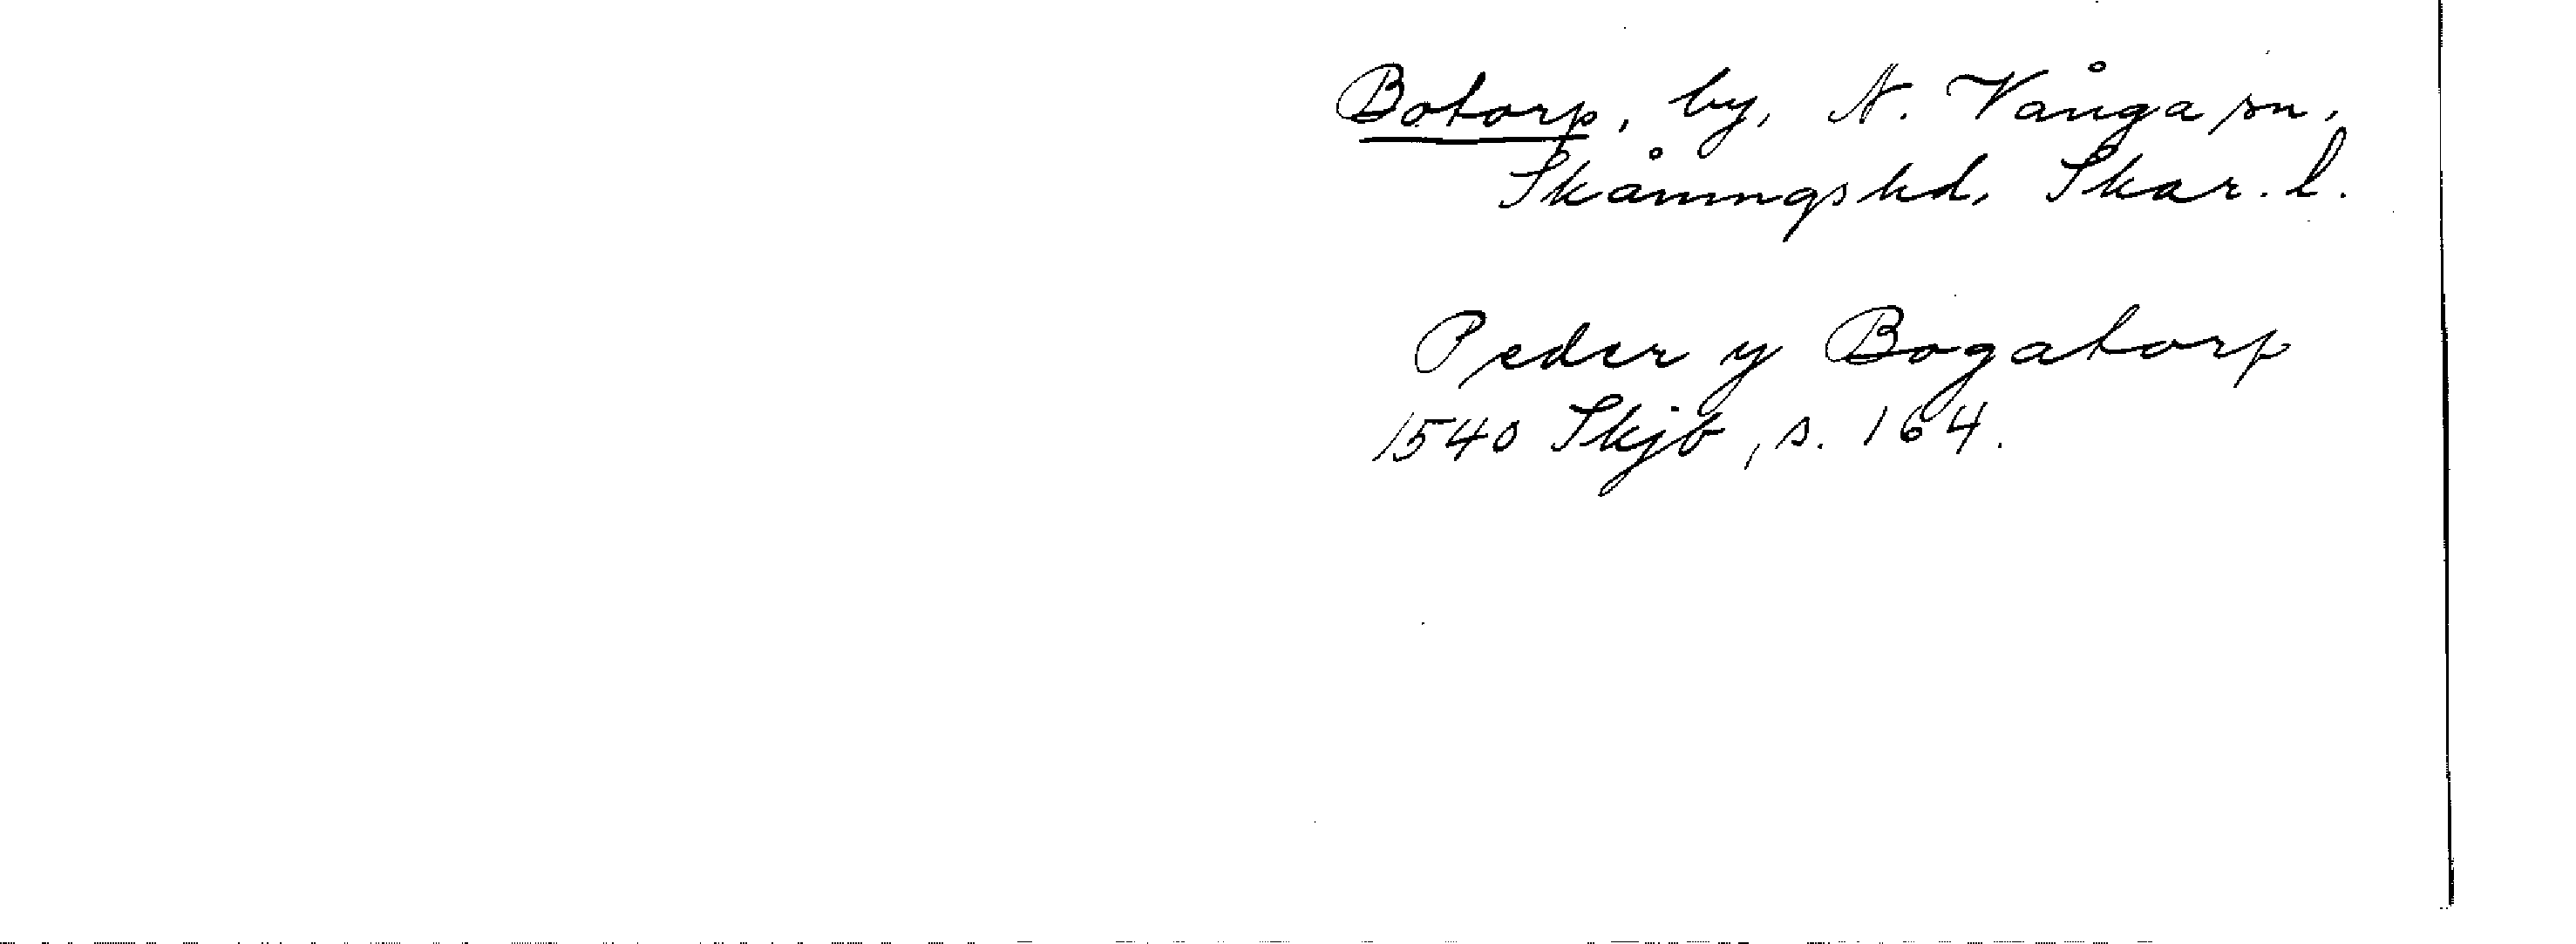 Botorp, by, N. Vånga sn,
Skånings hd, Skar. l.
Peder y Bogatorp
1540 Skjb, s. 164.